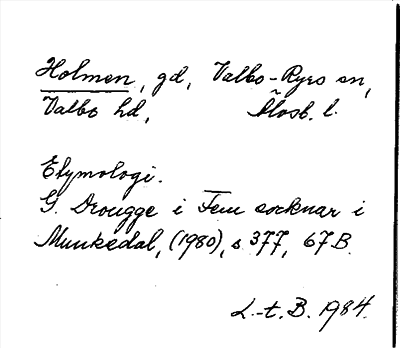 Holmen, gd, Valbo-Ryrs sn,
Valbo hd, Älvsb. l.
Etymologi.
G. Drougge i Fem socknar i
Munkedal, (1980), s. 377, 67B.
L.-t. B. 1984.